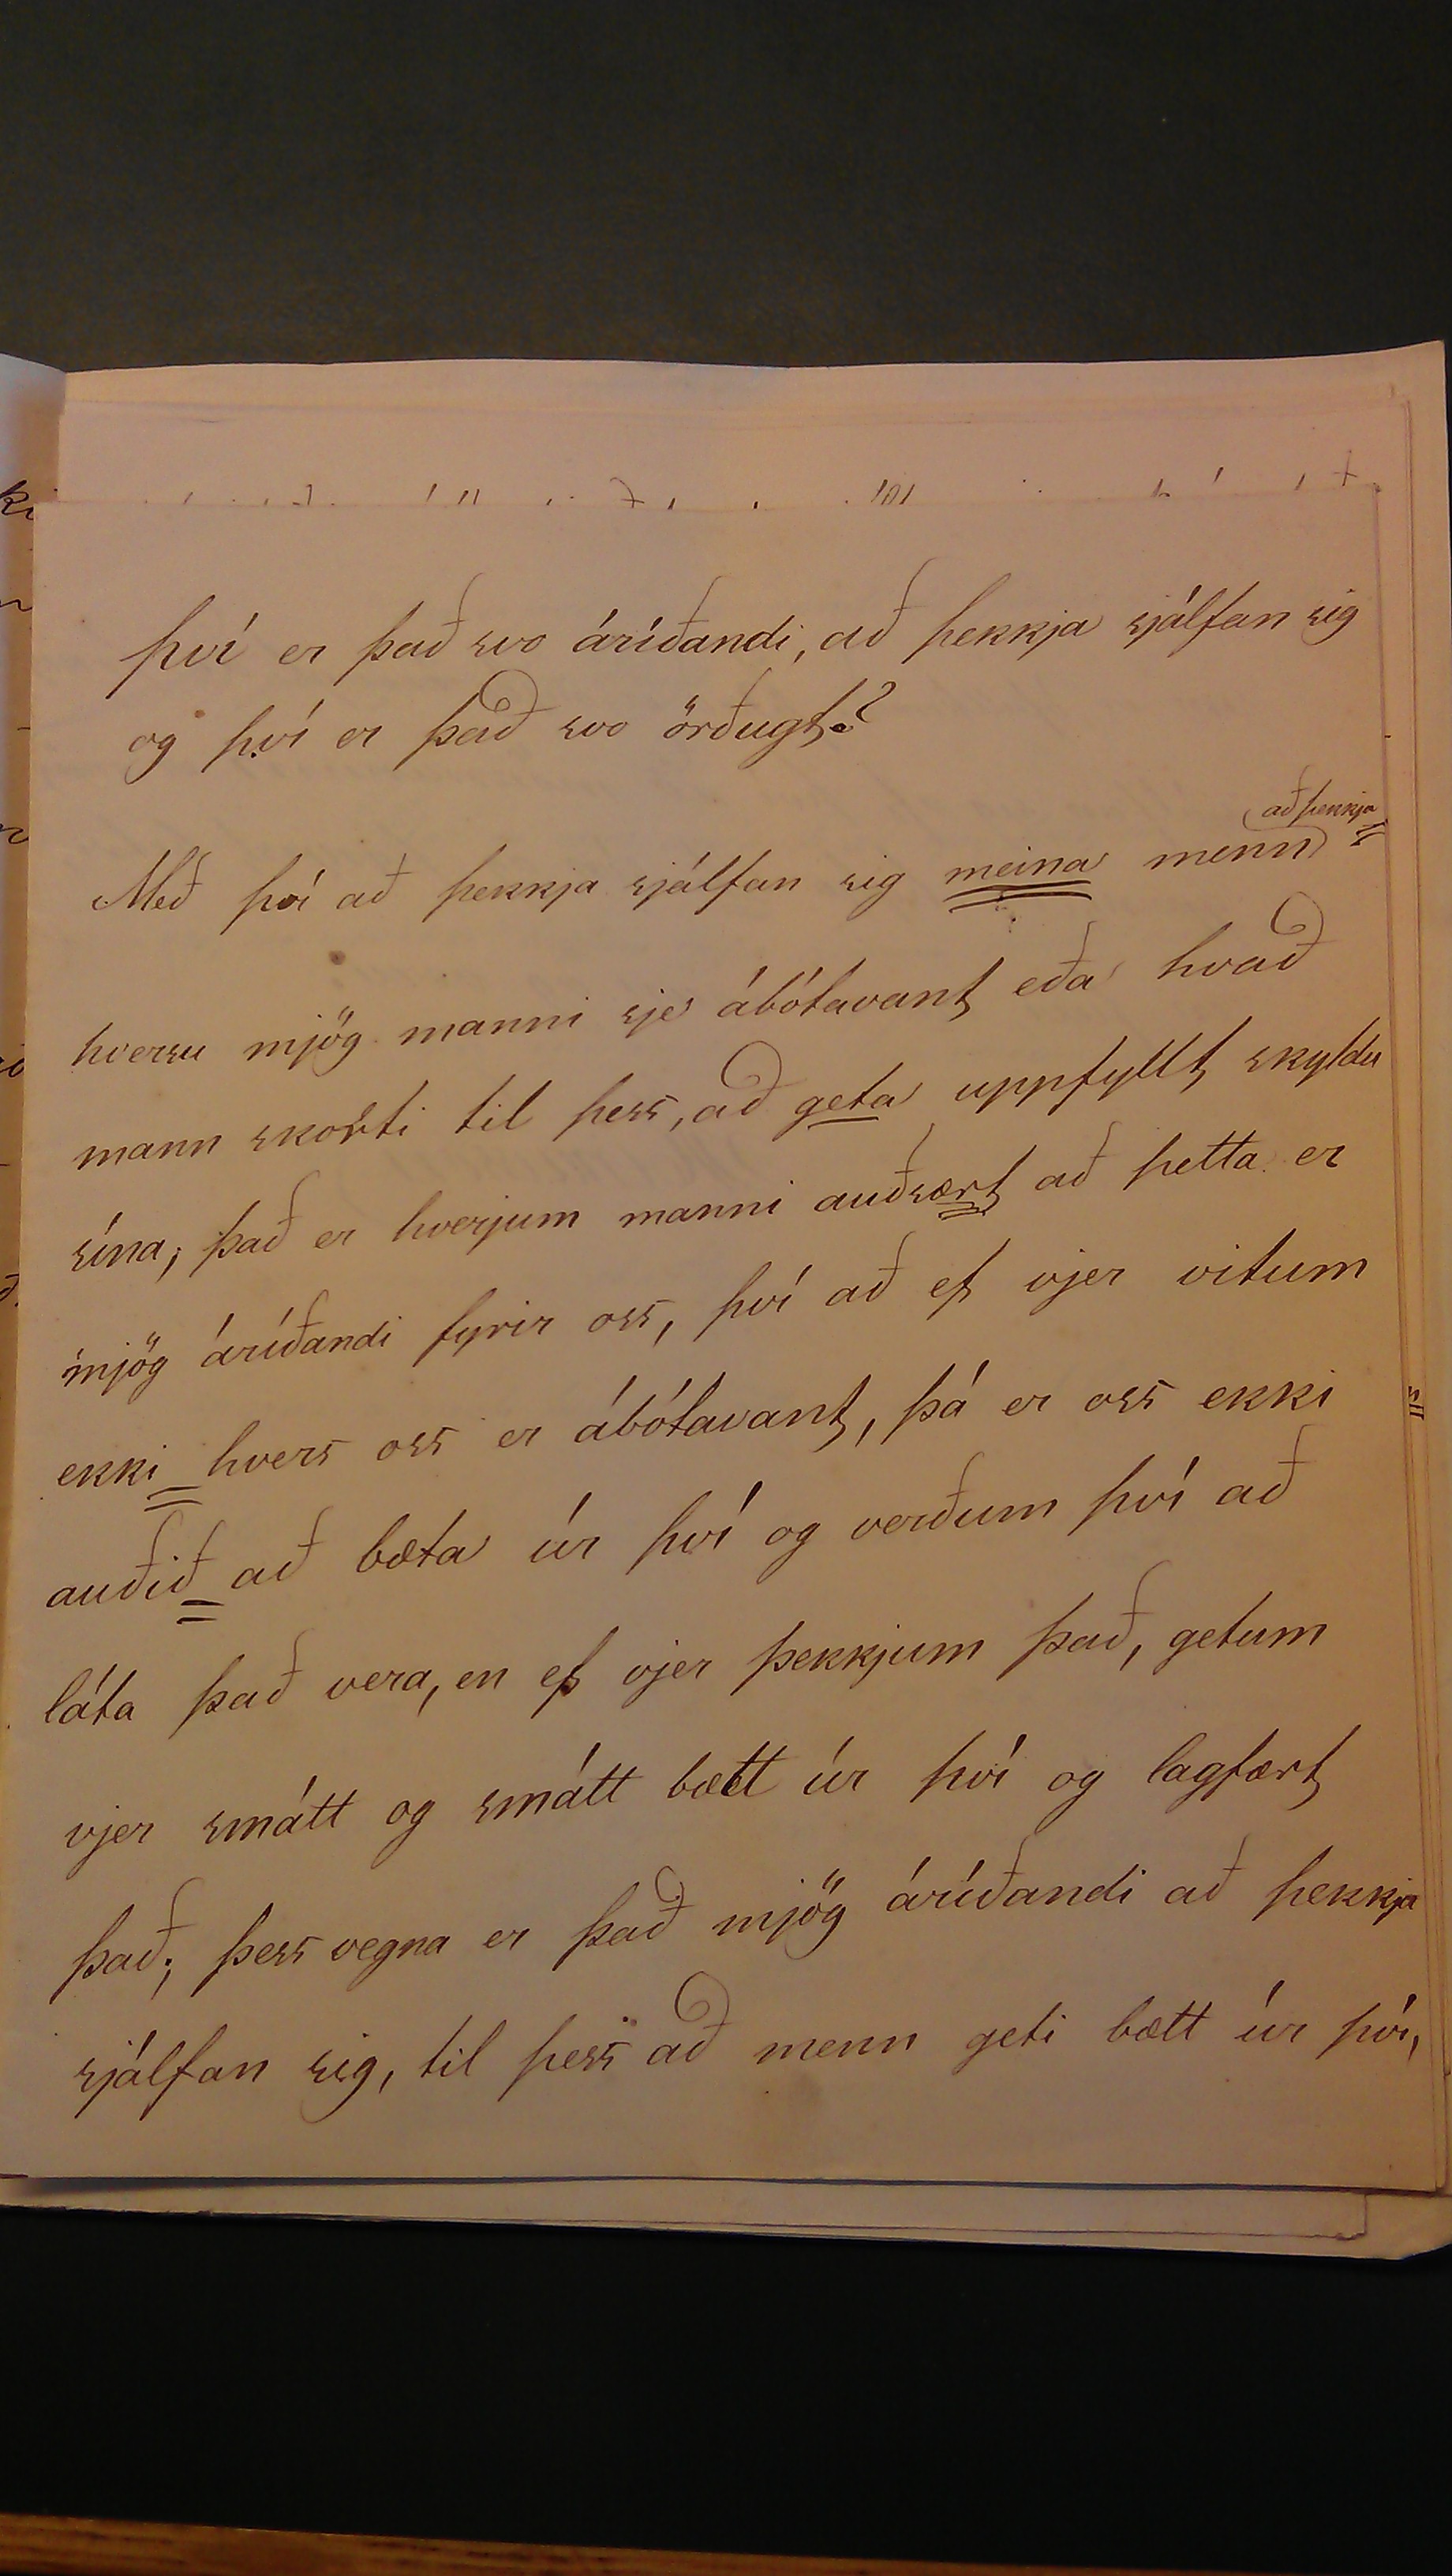 því er það svo áríðandi, að þekkja sjálfan sig
og því er það svo örðugt?
að þekkja
Með því að þekkja sjálfan sig meina menn
hversu mjög manni sje ábótavant eða hvað
mann skorti til þess, að geta uppfyllt skyldu
sína; það er hverjum manni auðsært að þetta er
mjög áríðandi fyrir oss, því að ef vjer vitum
ekki hvers oss er ábótavant, þá er oss ekki
auðið að bæta úr því og verðum því að
láta það vera, en ef vjer þekkjum það, getum
vjer smátt og smátt bætt úr því og lagfært
það; þess vegna er það mjög áríðandi að þekkja
sjálfan sig, til þess að menn geti bætt úr því,